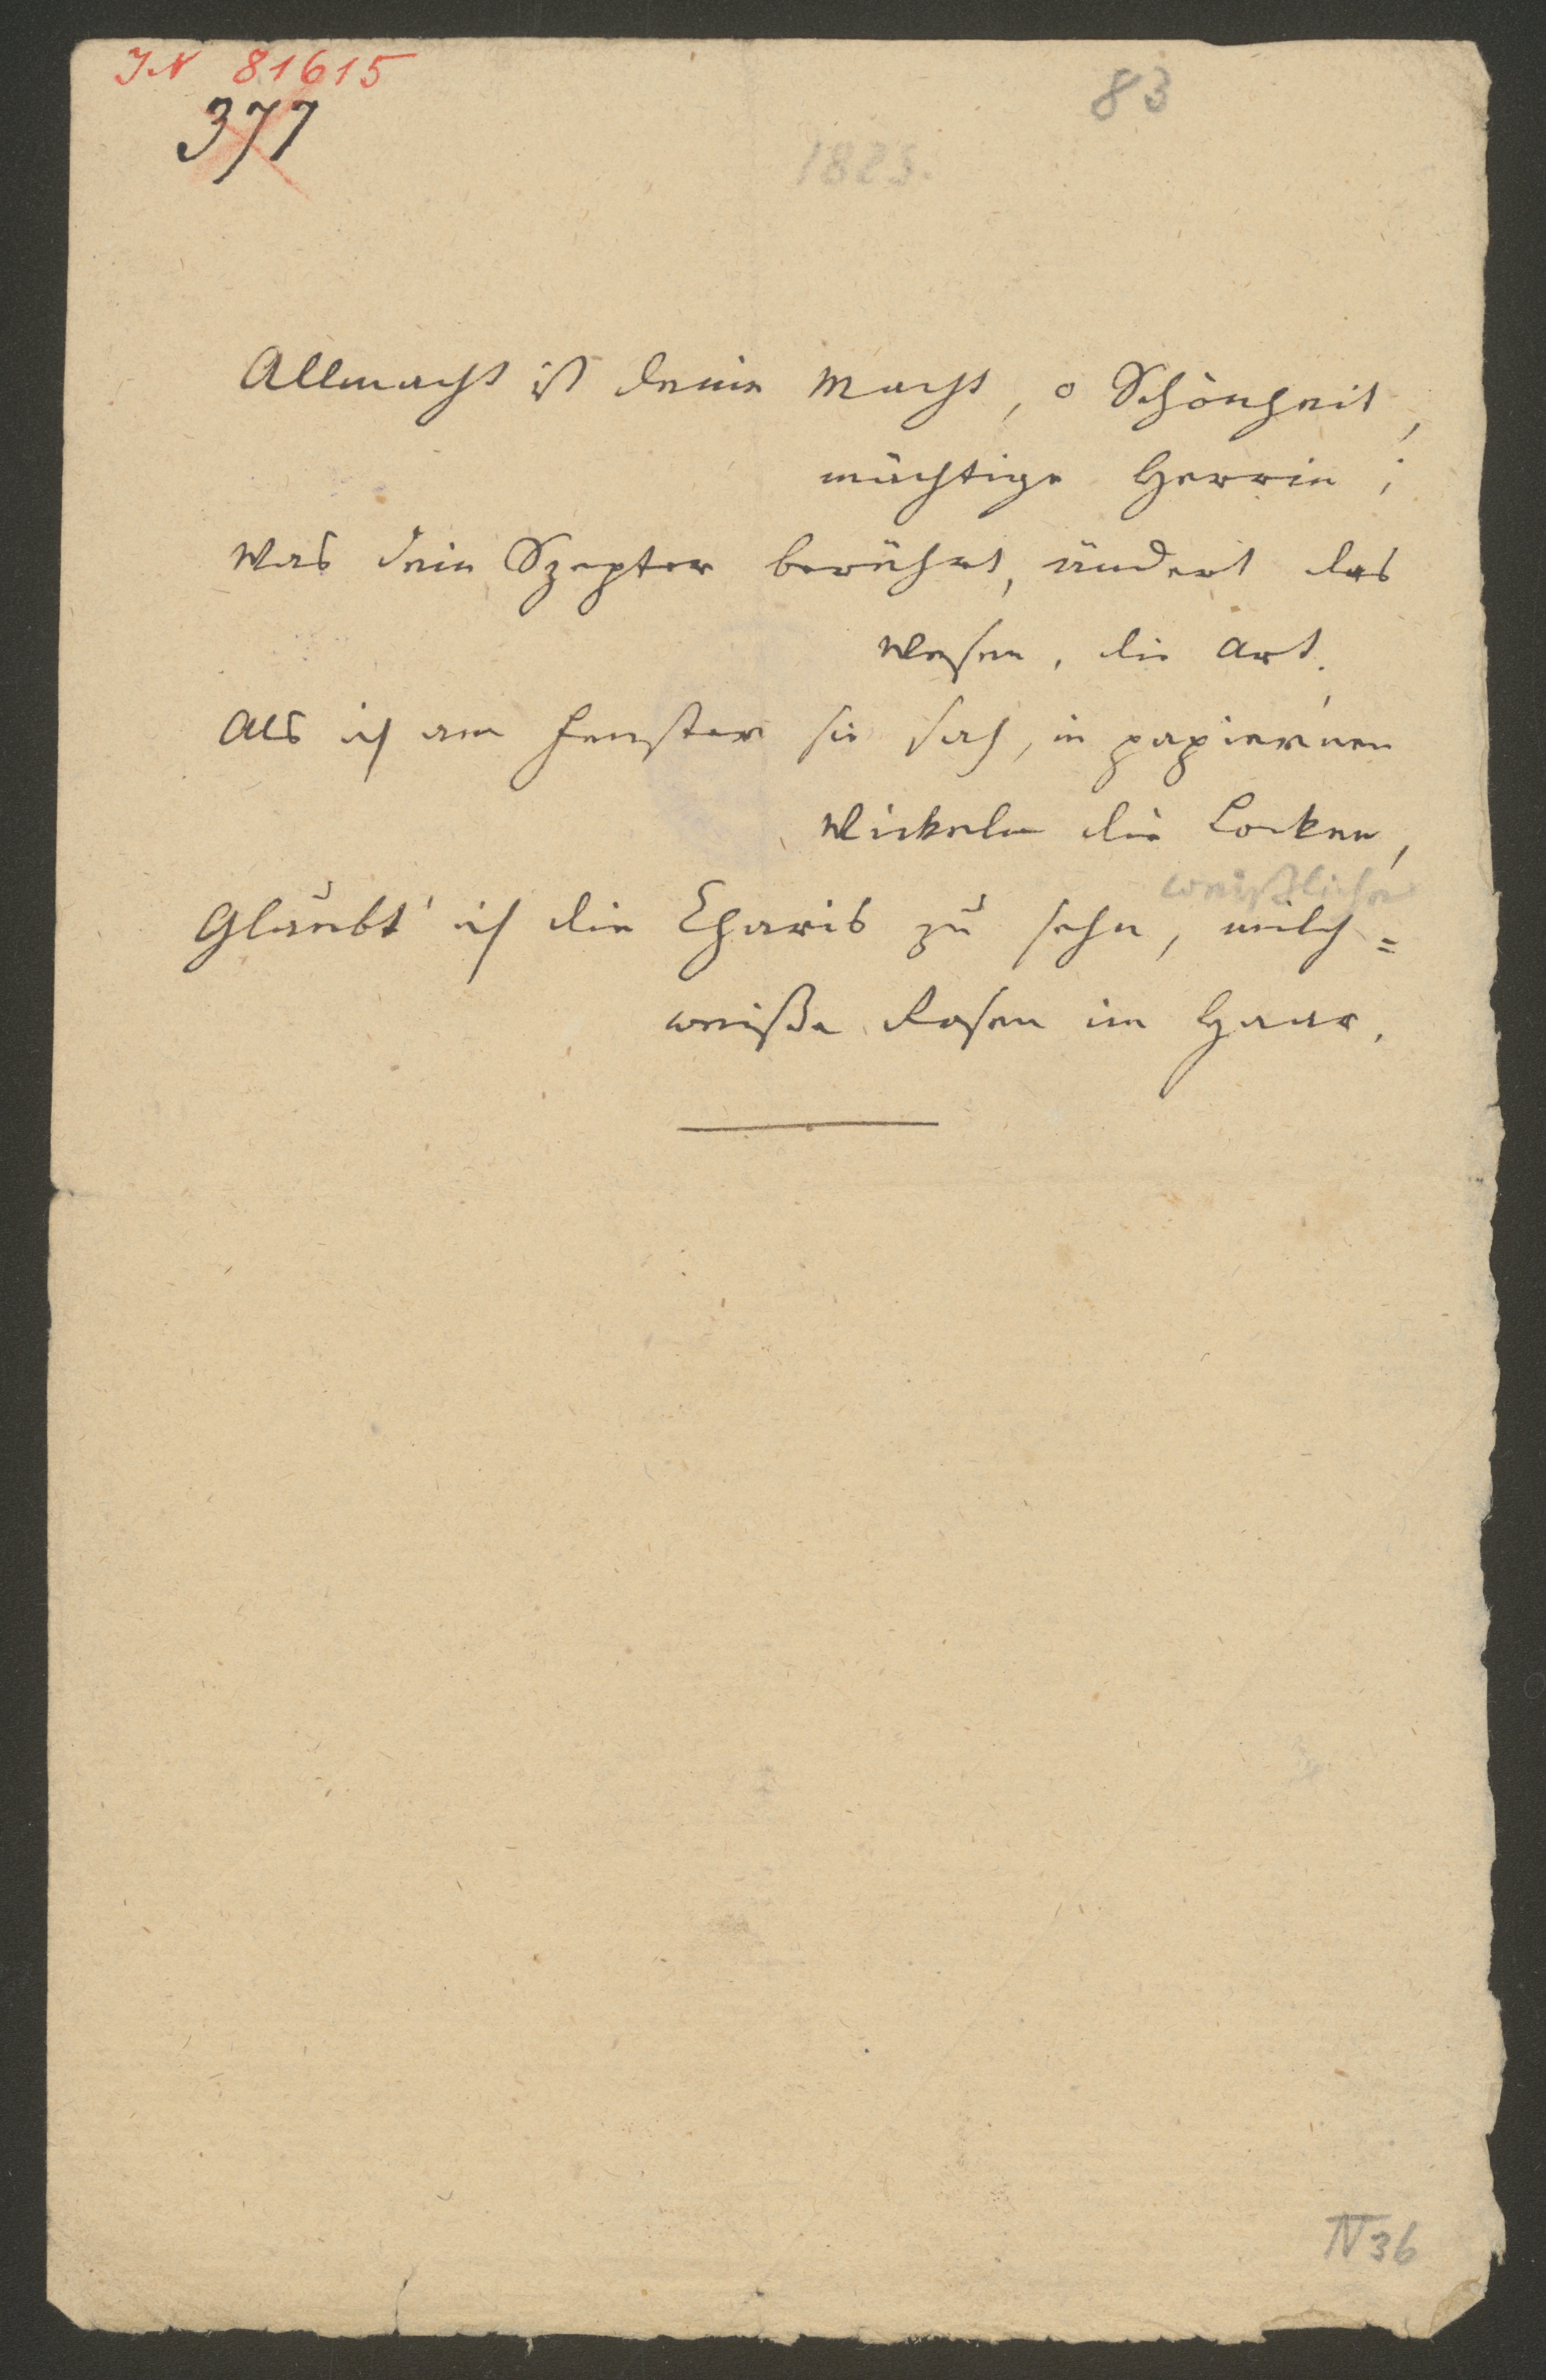 IN 81615
377
83
1823.
Allmacht ist deine Macht, o Schönheit,
mächtige Herrin;
Was dein Szepter berührt, ändert das
Wesen, die Art.
Als ich am Fenster sie sah, in papiernen
Wickeln die Locken,
weißliche
Glaubt' ich die Charis zu sehn, milch=
weiße Rosen im Haar.
IV 36